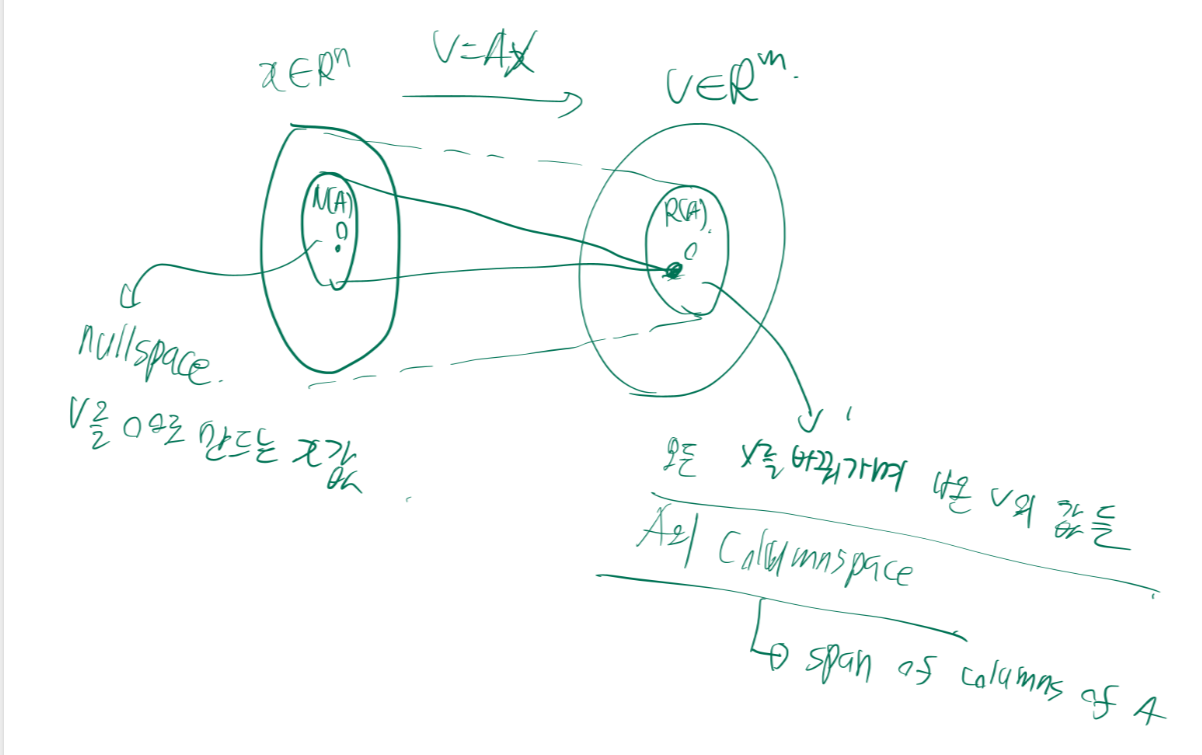 x∈Rⁿ
V=AX
V∈Rᵐ.
N(A)
0
R(A).
0
nullspace.
V를 0으로 만드는 x값
모든 X를 바꿔가며 나온 V의 값들
A의 Columnspace
span of columns of A